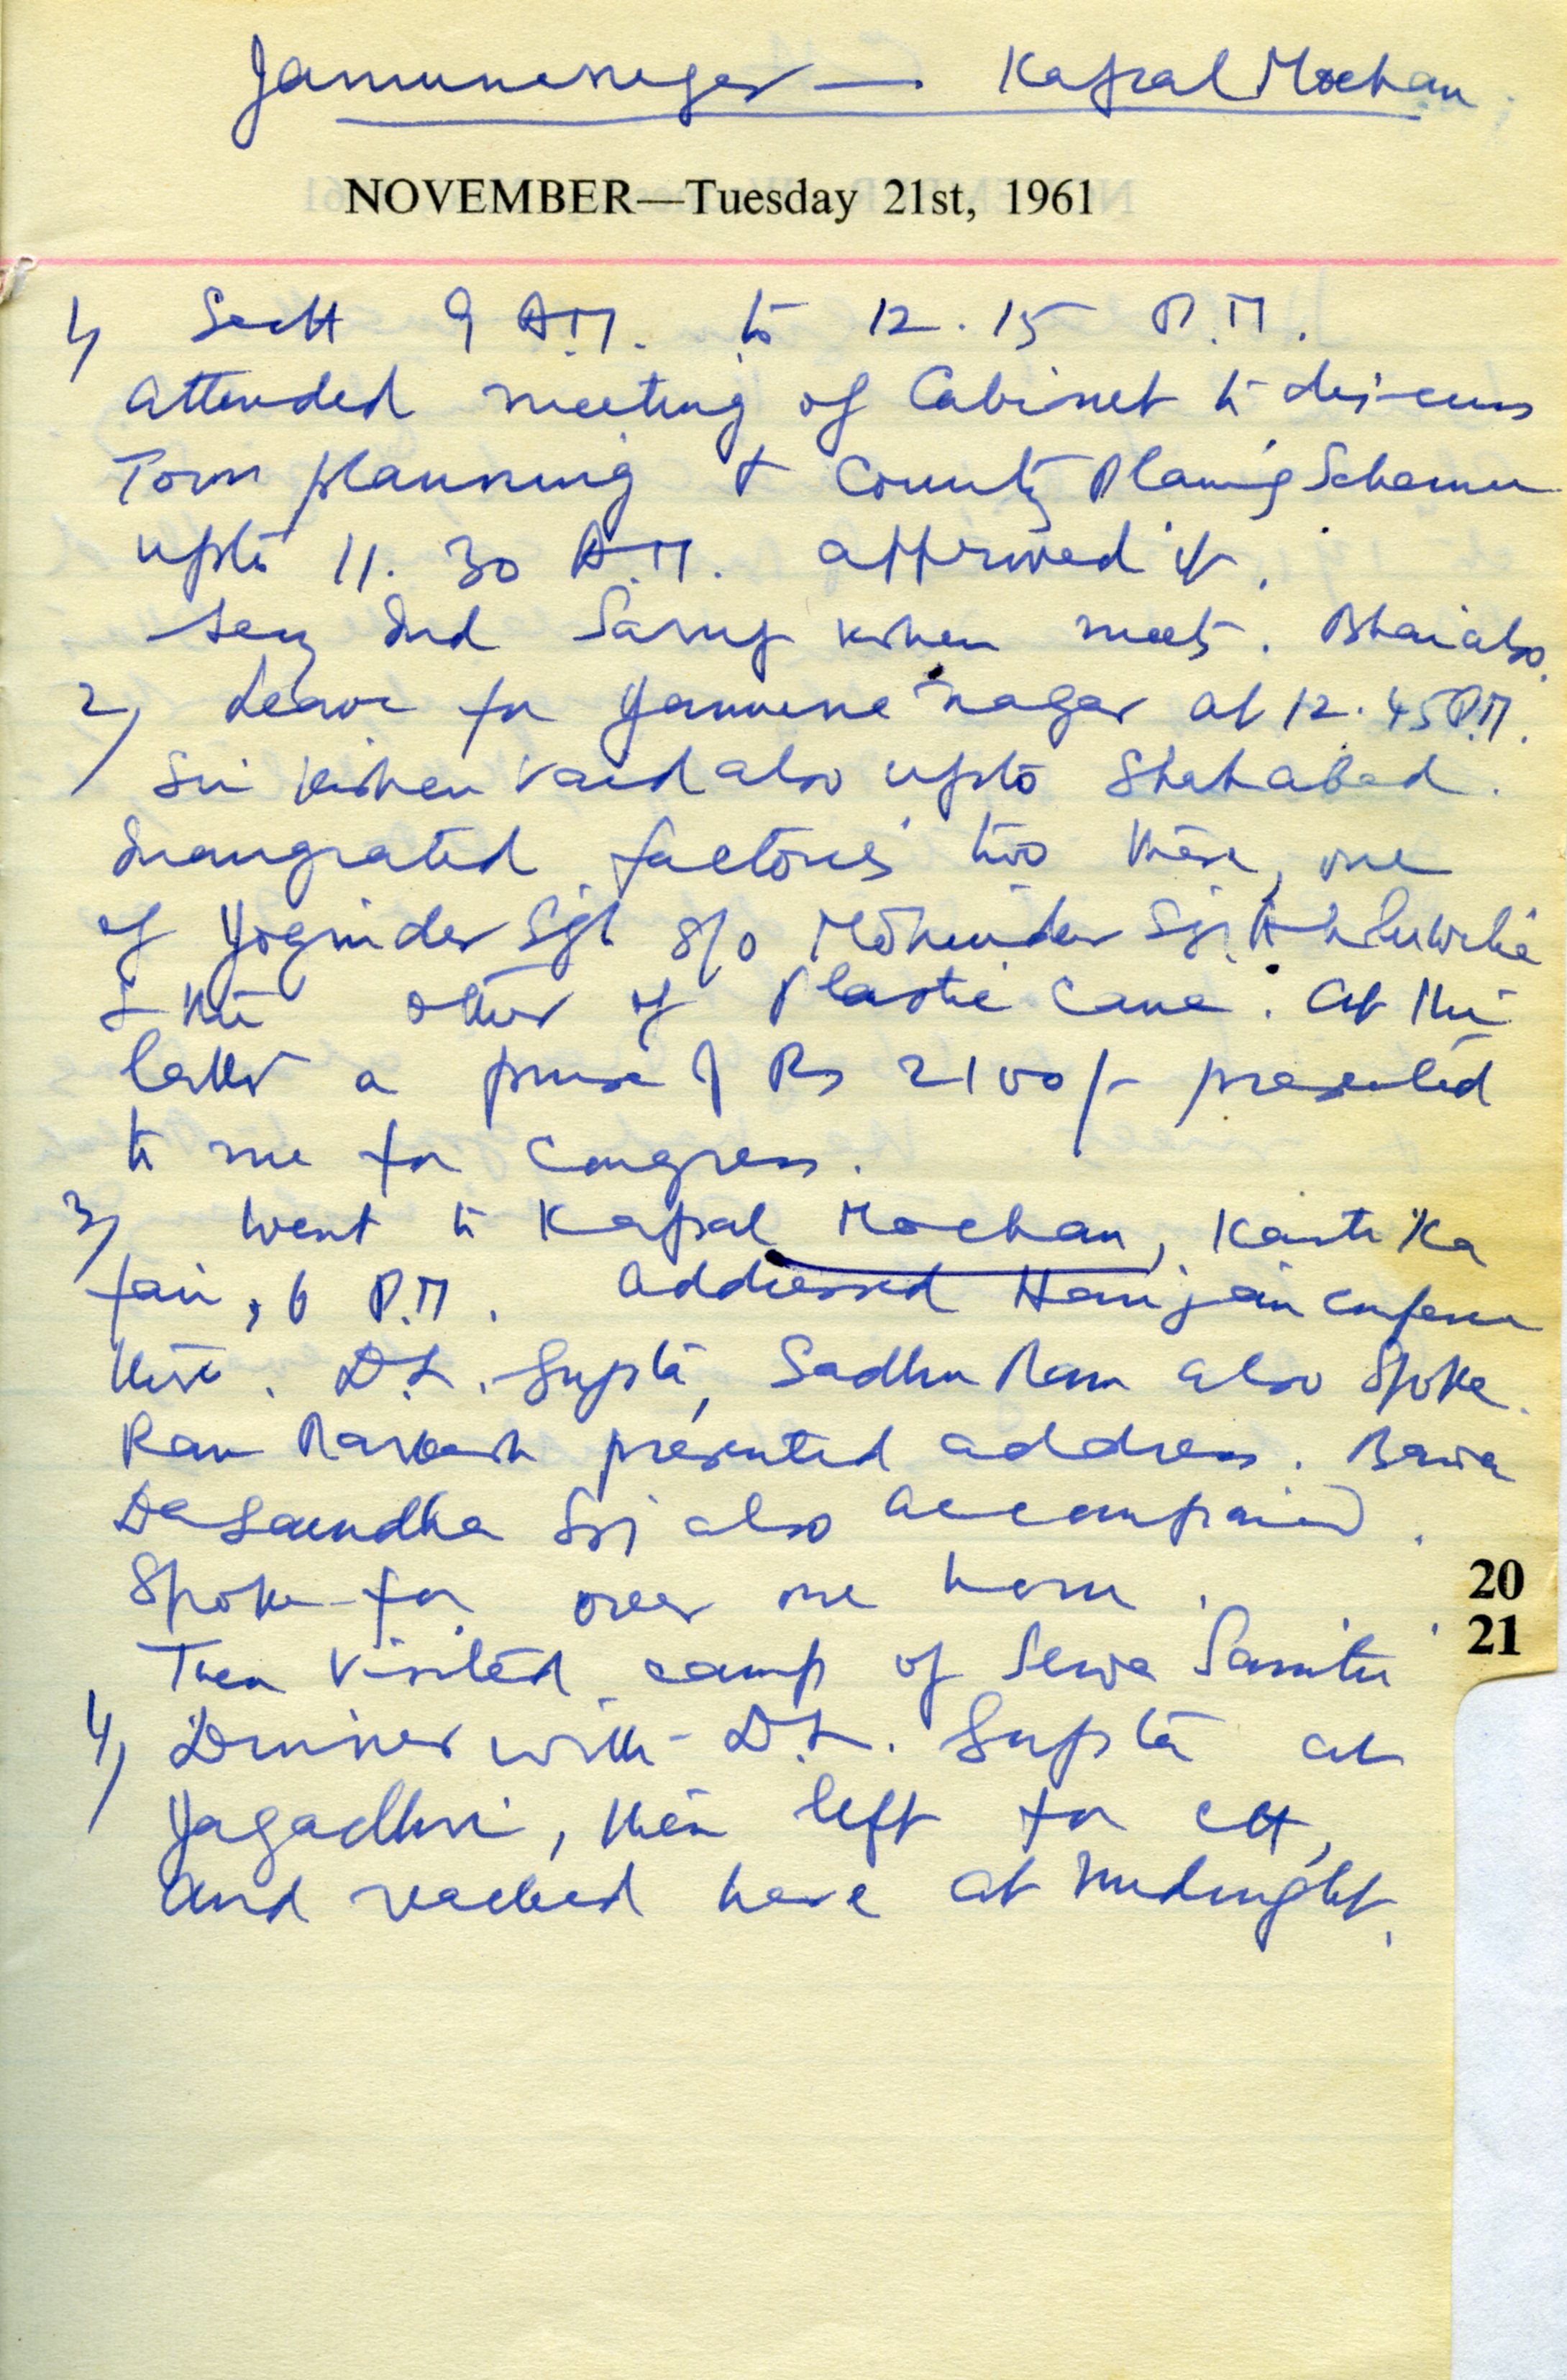 Jamunanagar — Kapal Mochan
NOVEMBER—Tuesday 21st, 1961
1) Sectt 9 A.M. to 12.15 P.M.
attended meeting of Cabinet to discuss
Town planning & County Planing Schemes
upto 11.30 A.M. approved it.
Secy Ind Sarup Krishen meets. Bhai also.
2) Leave for Jamuna nagar at 12.45 P.M.
Sri Krishen Vaid also upto Shahabad.
Inaugrated factories two there, one
of Joginder Sgh s/o Mohinder Sgh
& the other of Plastic Cane. At the
latter a purse of Rs 2100/- presented
to me for Congress.
3) Went to Kapal Mochan, Kartika
fair, 6 P.M. Addressed Harijan conference
there. D.D. Gupta, Sadhu Ram also spoke.
Ram Parkash presented address. Bawa
Dasaundha Sgh also accompanied.
Spoke for over one hour.
20
21
Then visited camp of Sewa Samiti
4) Dinner with D.D. Gupta at
Jagadhri, then left for CH,
and reached here at midnight.